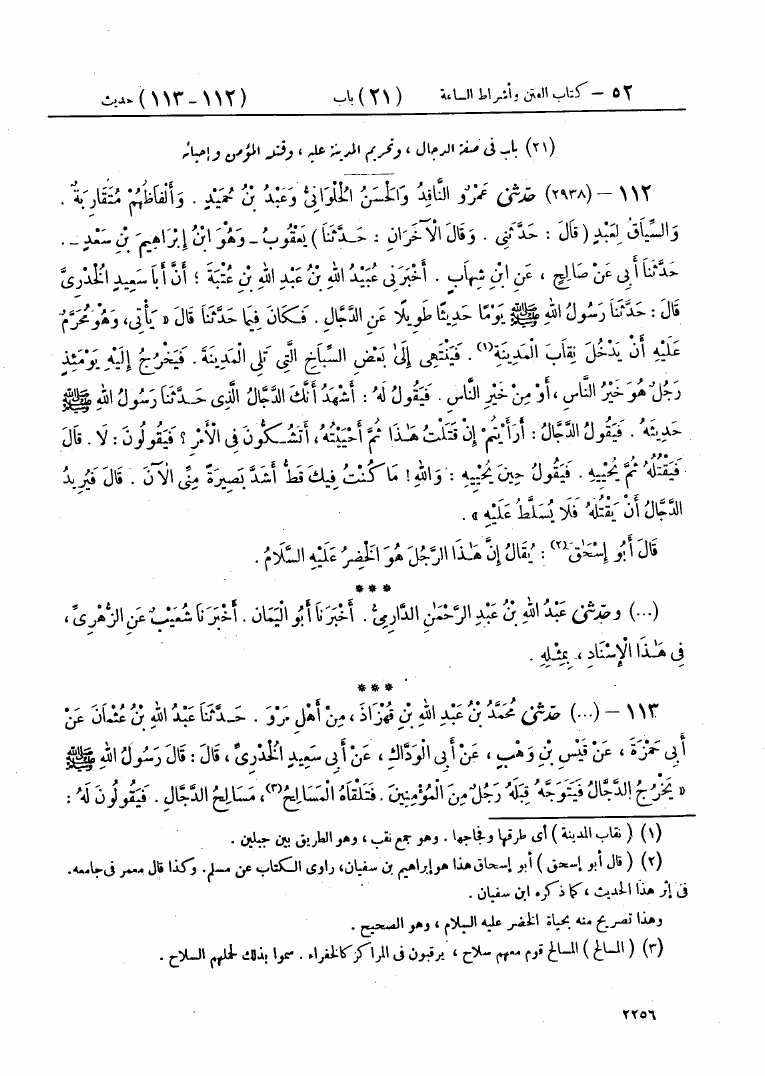 ٥٢ – كتاب الفتن وأشراط الساعة (٢١) باب (١١٢-١١٣) حديث
(٢١) باب فى صفة الدجال ، وتحريم المدينة عليه ، وقتله المؤمن وإحيائه
١١٢ – (٢٩٣٨) حَدَّثَنِى عَمْرٌو النَّاقِدُ وَالْحَسَنُ الْحُلْوَانِىُّ وَعَبْدُ بْنُ حُمَيْدٍ . وَأَلْفَاظُهُمْ مُتَقَارِبَةٌ .
وَالسِّيَاقُ لِعَبْدٍ ( قَالَ : حَدَّثَنِى . وَقَالَ الْآخَرَانِ : حَدَّثَنَا ) يَعْقُوبُ – وَهُوَ ابْنُ إِبْرَاهِيمَ بْنِ سَعْدٍ – .
حَدَّثَنَا أَبِى عَنْ صَالِحٍ ، عَنِ ابْنِ شِهَابٍ . أَخْبَرَنِى عُبَيْدُ اللهِ بْنُ عَبْدِ اللهِ بْنِ عُتْبَةَ ؛ أَنَّ أَبَا سَعِيدٍ الْخُدْرِىَّ
قَالَ : حَدَّثَنَا رَسُولُ اللهِ ﷺ يَوْمًا حَدِيثًا طَوِيلًا عَنِ الدَّجَّالِ . فَكَانَ فِيمَا حَدَّثَنَا قَالَ « يَأْتِى ، وَهُوَ مُحَرَّمٌ
عَلَيْهِ أَنْ يَدْخُلَ نِقَابَ الْمَدِينَةِ(١) . فَيَنْتَهِى إِلَىٰ بَعْضِ السِّبَاخِ الَّتِى تَلِى الْمَدِينَةَ . فَيَخْرُجُ إِلَيْهِ يَوْمَئِذٍ
رَجُلٌ هُوَ خَيْرُ النَّاسِ ، أَوْ مِنْ خَيْرِ النَّاسِ . فَيَقُولُ لَهُ : أَشْهَدُ أَنَّكَ الدَّجَّالُ الَّذِى حَدَّثَنَا رَسُولُ اللهِ ﷺ
حَدِيثَهُ . فَيَقُولُ الدَّجَّالُ : أَرَأَيْتُمْ إِنْ قَتَلْتُ هَٰذَا ثُمَّ أَحْيَيْتُهُ ، أَتَشُكُّونَ فِى الْأَمْرِ ؟ فَيَقُولُونَ : لَا . قَالَ
فَيَقْتُلُهُ ثُمَّ يُحْيِيهِ . فَيَقُولُ حِينَ يُحْيِيهِ : وَاللهِ ! مَا كُنْتُ فِيكَ قَطُّ أَشَدَّ بَصِيرَةً مِنِّى الْآنَ . قَالَ فَيُرِيدُ
الدَّجَّالُ أَنْ يَقْتُلَهُ فَلَا يُسَلَّطُ عَلَيْهِ » .
قَالَ أَبُو إِسْحَاقَ(٢) : يُقَالُ إِنَّ هَٰذَا الرَّجُلَ هُوَ الْخَضِرُ عَلَيْهِ السَّلَامُ .
***
(...) وحَدَّثَنِى عَبْدُ اللهِ بْنُ عَبْدِ الرَّحْمَٰنِ الدَّارِمِىُّ . أَخْبَرَنَا أَبُو الْيَمَانِ . أَخْبَرَنَا شُعَيْبٌ عَنِ الزُّهْرِىِّ ،
فِى هَٰذَا الْإِسْنَادِ ، بِمِثْلِهِ .
***
١١٣ – (...) حَدَّثَنِى مُحَمَّدُ بْنُ عَبْدِ اللهِ بْنِ قُهْزَاذَ ، مِنْ أَهْلِ مَرْوَ . حَدَّثَنَا عَبْدُ اللهِ بْنُ عُثْمَانَ عَنْ
أَبِى حَمْزَةَ ، عَنْ قَيْسِ بْنِ وَهْبٍ ، عَنْ أَبِى الْوَدَّاكِ ، عَنْ أَبِى سَعِيدٍ الْخُدْرِىِّ ، قَالَ : قَالَ رَسُولُ اللهِ ﷺ
« يَخْرُجُ الدَّجَّالُ فَيَتَوَجَّهُ قِبَلَهُ رَجُلٌ مِنَ الْمُؤْمِنِينَ . فَتَلْقَاهُ الْمَسَالِحُ(٣) ، مَسَالِحُ الدَّجَّالِ . فَيَقُولُونَ لَهُ :
(١) ( نقاب المدينة ) أى طرقها وفجاجها . وهو جمع نقب ، وهو الطريق بين جبلين .
(٢) ( قال أبو إسحق ) أبو إسحاق هذا هو إبراهيم بن سفيان ، راوى الكتاب عن مسلم . وكذا قال معمر فى جامعه .
فى إثر هذا الحديث ، كما ذكره ابن سفيان .
وهذا تصريح منه بحياة الخضر عليه السلام ، وهو الصحيح .
(٣) ( المسالح ) المسالح قوم معهم سلاح ، يرقبون فى المراكز كالخفراء . سموا بذلك لحملهم السلاح .
٢٢٥٦